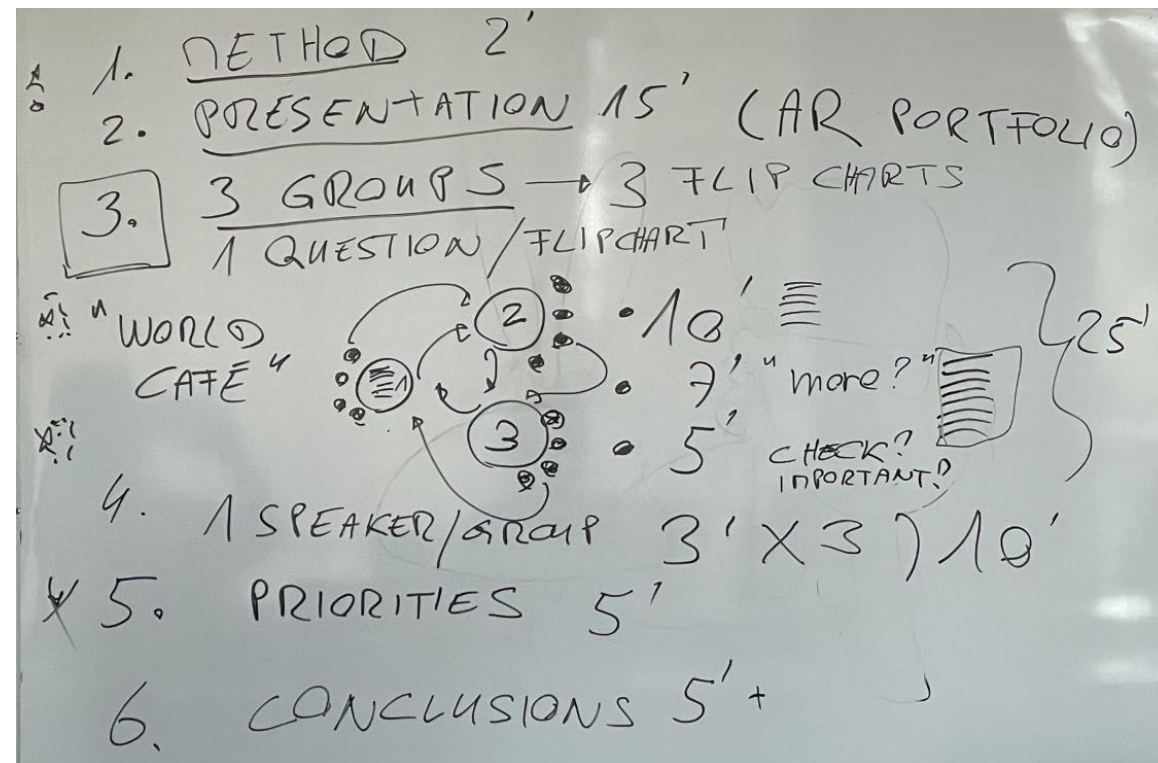 1. METHOD 2'
2. PRESENTATION 15' (AR PORTFOLIO)
3. 3 GROUPS → 3 FLIP CHARTS
1 QUESTION/FLIPCHART
"WORLD CAFÉ"
1
2
3
• 10'
• 7' "more?"
• 5' CHECK? IMPORTANT?
25'
4. 1 SPEAKER/GROUP 3' X 3) 10'
5. PRIORITIES 5'
6. CONCLUSIONS 5' +